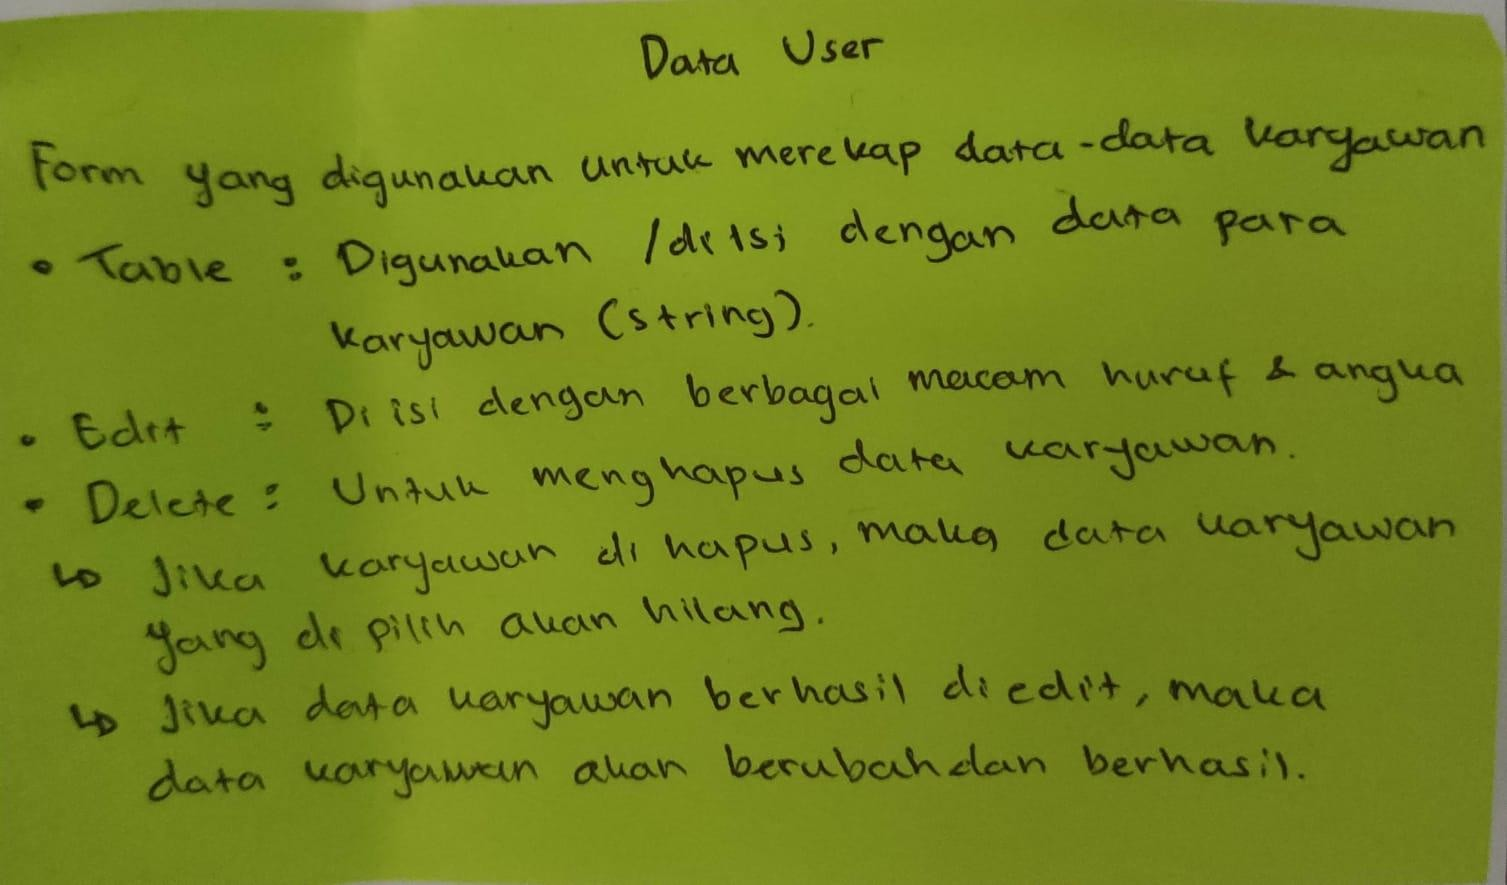 Data User
Form yang digunakan untuk merekap data-data karyawan
• Table : Digunakan /diisi dengan data para
karyawan (string).
• Edit : Di isi dengan berbagai macam huruf & angka
• Delete : Untuk menghapus data karyawan.
↳ Jika karyawan di hapus, maka data karyawan
yang di pilih akan hilang.
↳ Jika data karyawan berhasil di edit, maka
data karyawan akan berubah dan berhasil.